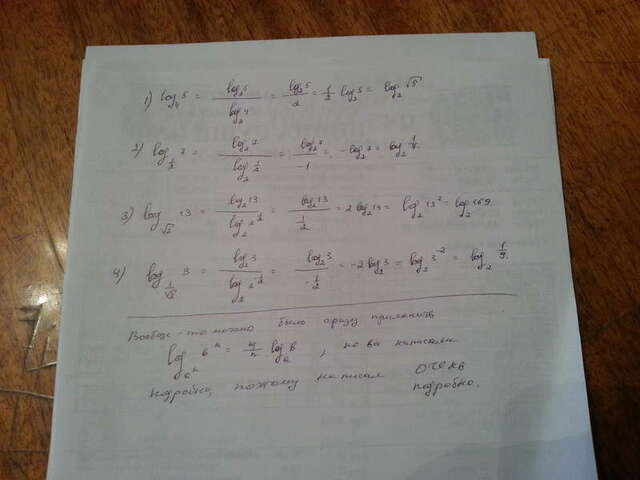 1) log₄5 = log₂5 / log₂4 = log₂5 / 2 = 1/2 log₂5 = log₂√5
2) log_{1/2} 7 = log₂7 / log₂ 1/2 = log₂7 / -1 = -log₂7 = log₂ 1/7.
3) log_{√2} 13 = log₂13 / log₂2^{1/2} = log₂13 / 1/2 = 2 log₂13 = log₂13² = log₂169.
4) log_{1/√2} 3 = log₂3 / log₂2^{-1/2} = log₂3 / -1/2 = -2 log₂3 = log₂3⁻² = log₂ 1/9.
Вообще-то можно было сразу применить
log_{aⁿ} bᵏ = k/n logₐb, но вы написали
подробно, поэтому написал ОЧЕНЬ
подробно.